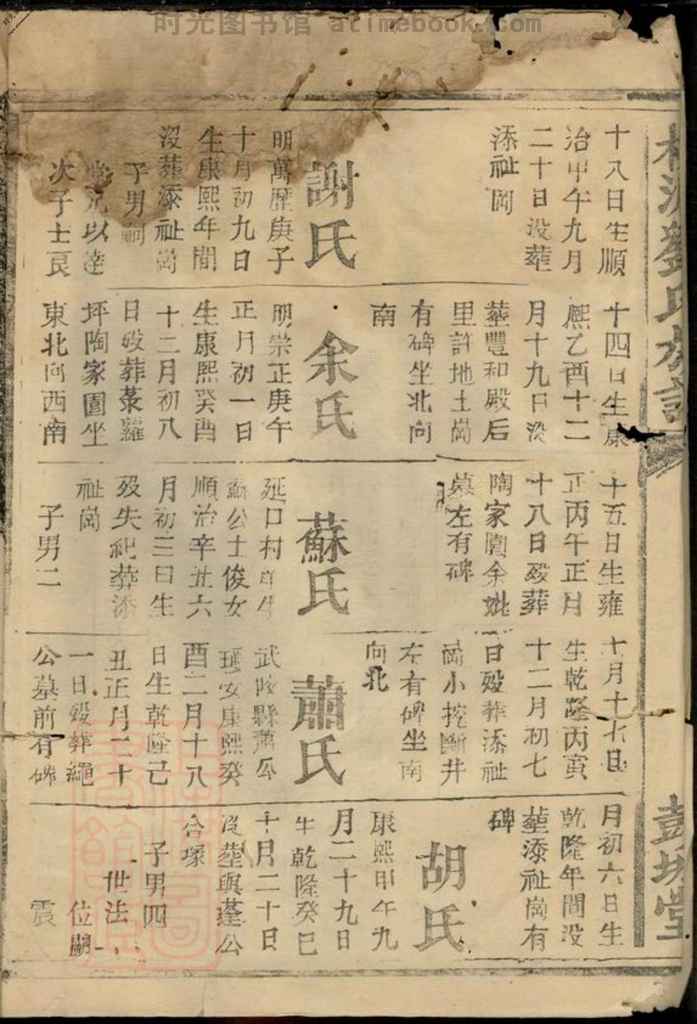 时光图书馆 atimebook.com
劉氏族譜
彭城堂
十八日生順
治甲午九月
二十日没葬
添祉崗
謝氏
明萬歷庚子
十月初九日
生康熙年間
没葬添祉崗
子男嗣
次子士良
十四日生康
熙乙酉十二
月十九日没
葬豐和殿后
里許地土崗
有碑坐北向
南
余氏
明崇正庚午
正月初一日
生康熙癸酉
十二月初八
日殁葬菉羅
坪陶家園坐
東北向西南
十五日生雍
正丙午正月
十八日殁葬
陶家園余妣
墓左有碑
蘇氏
延口村
蘇公士俊女
順治辛丑六
月初三日生
殁失紀葬添
祉崗
子男二
七月十七日
生乾隆丙寅
十二月初七
日殁葬添祉
崗小挖斷井
左有碑坐南
向北
蕭氏
武陵縣蕭公
瑶安康熙癸
酉二月十八
日生乾隆己
丑正月二十
一日殁葬繩
公墓前有碑
月初六日生
乾隆年間没
葬添祉崗有
碑
胡氏
康熙甲午九
月二十九日
生乾隆癸巳
十月二十日
没葬與蓬公
合塚
子男四
世法
位嗣
震